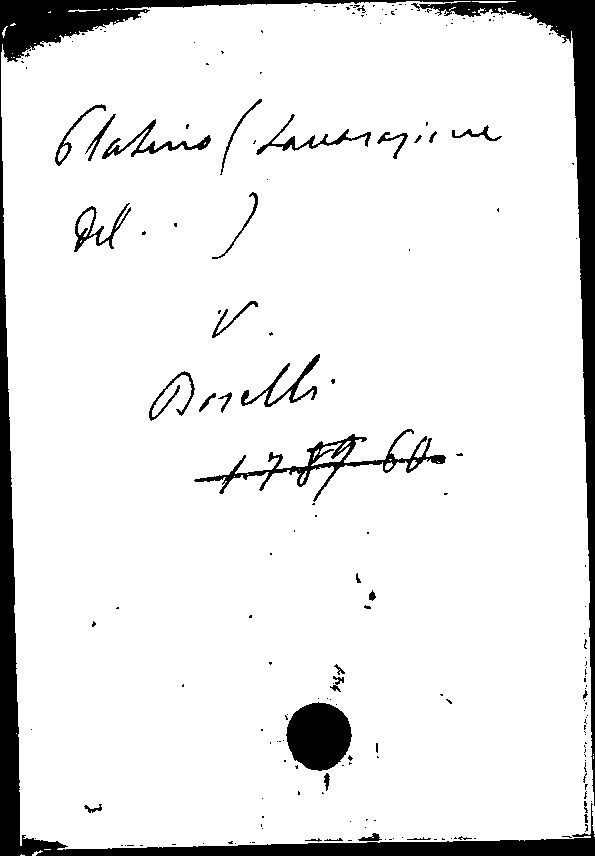 Platino (Lavorazione
del . . . )
V.
Boselli.
1.7.89 60.